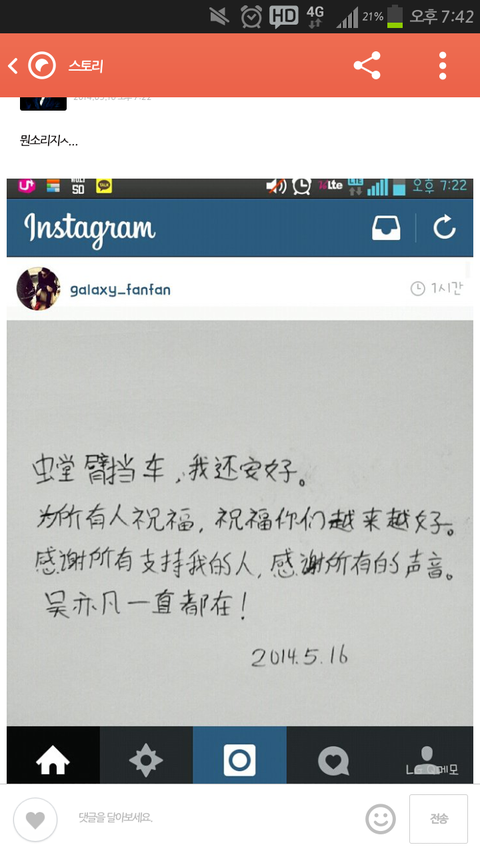 HD 4G 21% 오후 7:42
스토리
뭔소리지ㅅ...
U+ SD TALK LTE LTE 오후 7:22
Instagram
galaxy_fanfan 1시간
螳臂挡车,我还安好。
为所有人祝福,祝福你们越来越好。
感谢所有支持我的人,感谢所有的声音。
吴亦凡一直都在!
2014.5.16
댓글을 달아보세요.
전송